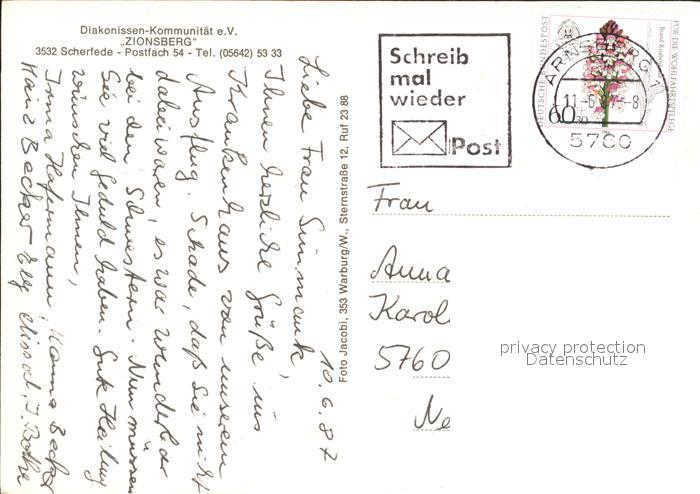 Diakonissen-Kommunität e.V.
„ZIONSBERG"
3532 Scherfede - Postfach 54 - Tel. (05642) 53 33
10.6.87
Liebe Frau
Ihnen herzliche Grüße ins
Krankenhaus von unserem
Ausflug. Schade, daß Sie nicht
dabei waren, es war wunderbar
bei den Schwestern. Nun müssen
Sie viel Geduld haben. Gute Heilung
wünschen Ihnen,
Irma Hafermann, Hanna Becker
Heinz Becker Elly
Foto Jacobi, 353 Warburg/W., Sternstraße 12, Ruf 23 88
Schreib
mal
wieder
Post
DEUTSCHE BUNDESPOST
FÜR DIE WOHLFAHRTSPFLEGE
60
+30
ARNSBERG 1
5760
Frau
Anna
Karol
5760
Ne
privacy protection
Datenschutz